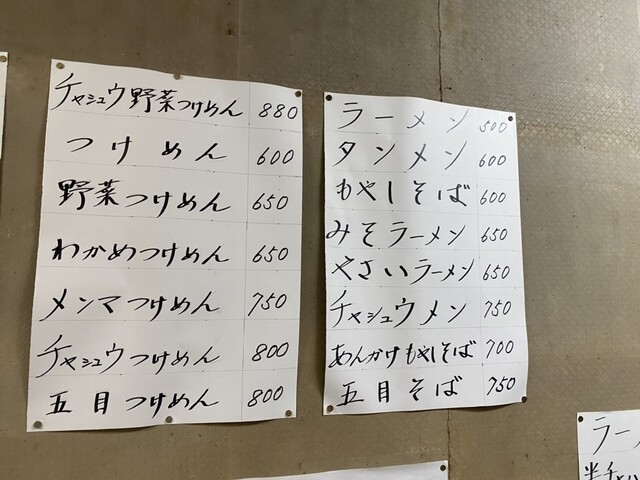 チャシュウ野菜つけめん 880
つけめん 600
野菜つけめん 650
わかめつけめん 650
メンマつけめん 750
チャシュウつけめん 800
五目つけめん 800
ラーメン 500
タンメン 600
もやしそば 600
みそラーメン 650
やさいラーメン 650
チャシュウメン 750
あんかけもやしそば 700
五目そば 750
ラー
半チャ